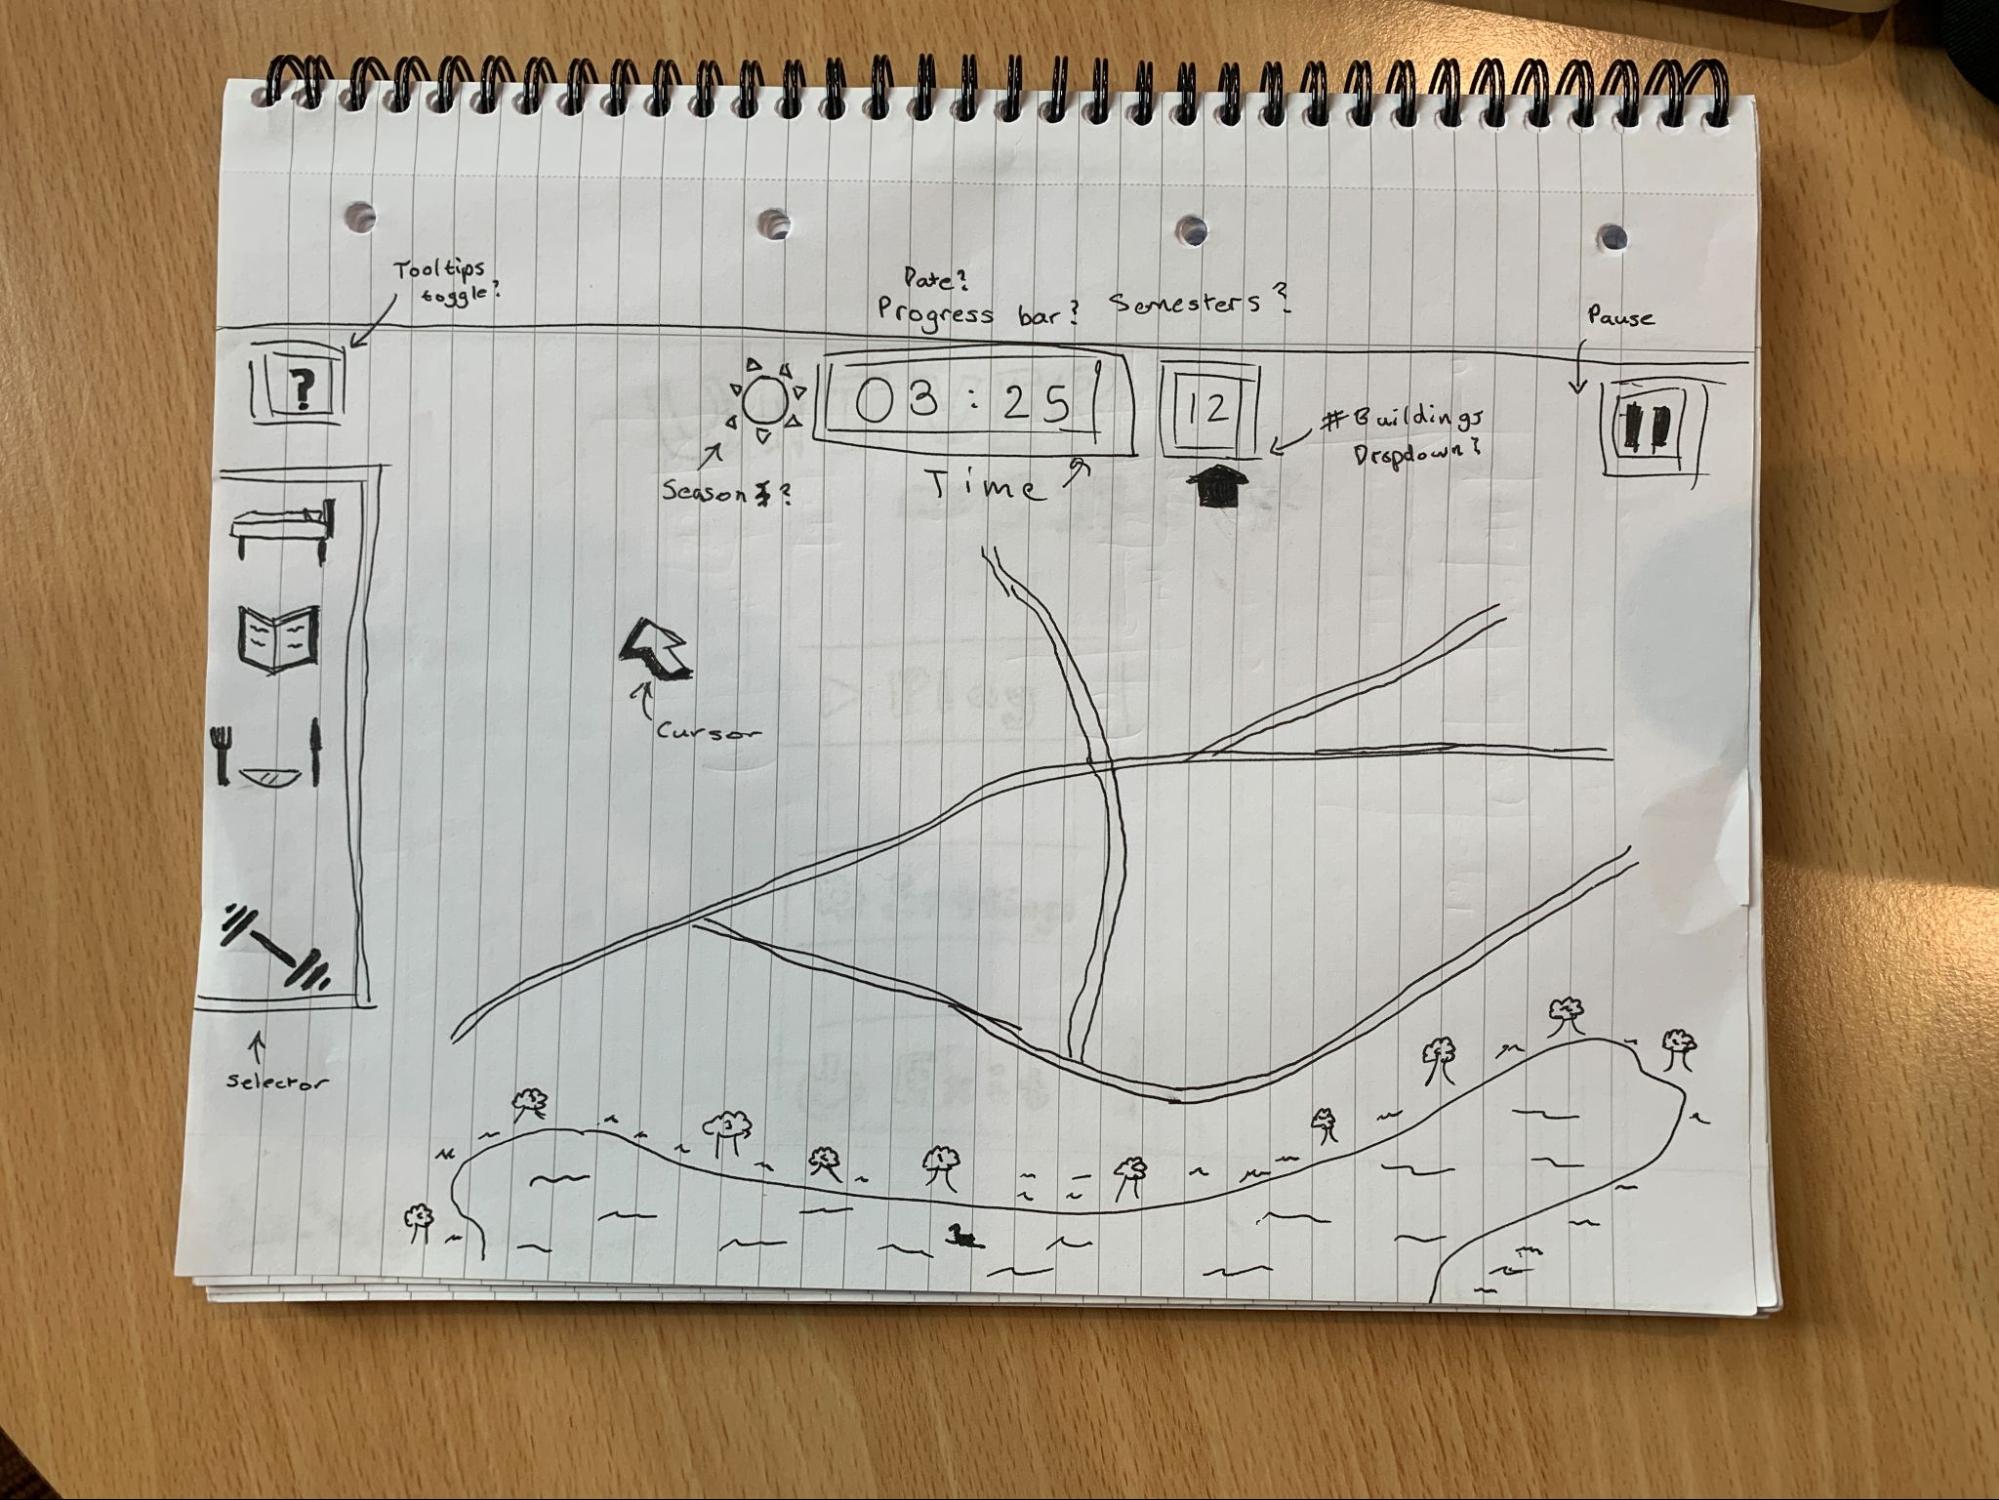 Tooltips
toggle?
Date?
Progress bar? Semesters?
Pause
?
03:25
12
#Buildings
Dropdown?
Season ?
Time
Cursor
Selector